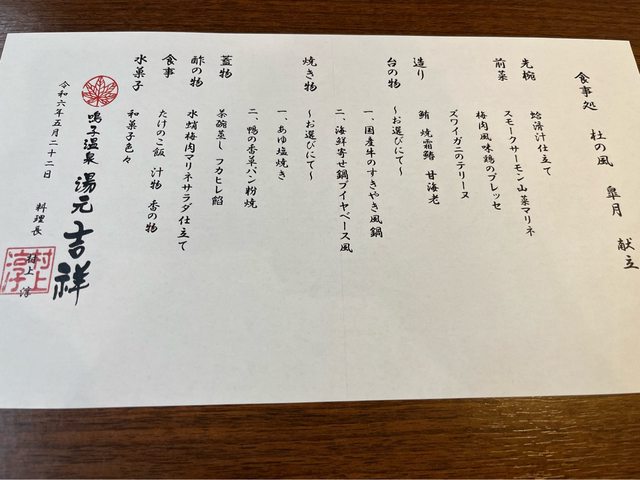 食事処 杜の風 皐月 献立
先椀 蛤潮汁仕立て
前菜 スモークサーモン山菜マリネ
梅肉風味鶏のプレッセ
ズワイガニのテリーヌ
造り 鮪 焼霜鰆 甘海老
台の物 ~お選びにて~
一、国産牛のすきやき風鍋
二、海鮮寄せ鍋ブイヤベース風
焼き物 ~お選びにて~
一、あゆ塩焼き
二、鴨の香草パン粉焼
蓋物 茶碗蒸し フカヒレ餡
酢の物 水蛸梅肉マリネサラダ仕立て
食事 たけのこ飯 汁物 香の物
水菓子 和菓子色々
鳴子温泉 湯元 吉祥
令和六年五月二十二日
料理長 村上 淳
村上淳